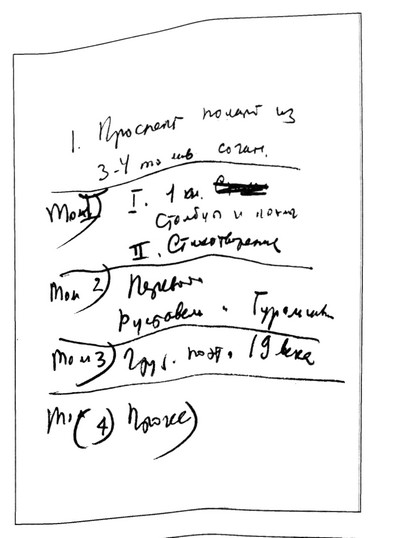 1. Проспект полит из
3-4 томов сочин.
Том 1) I. 1 кн.
Столбуп и
II. Стихотворения
Том 2) Переводы
Руставели и Гурамишв.
Том 3) Груз. поэт. 19 века
Том (4) Проза)